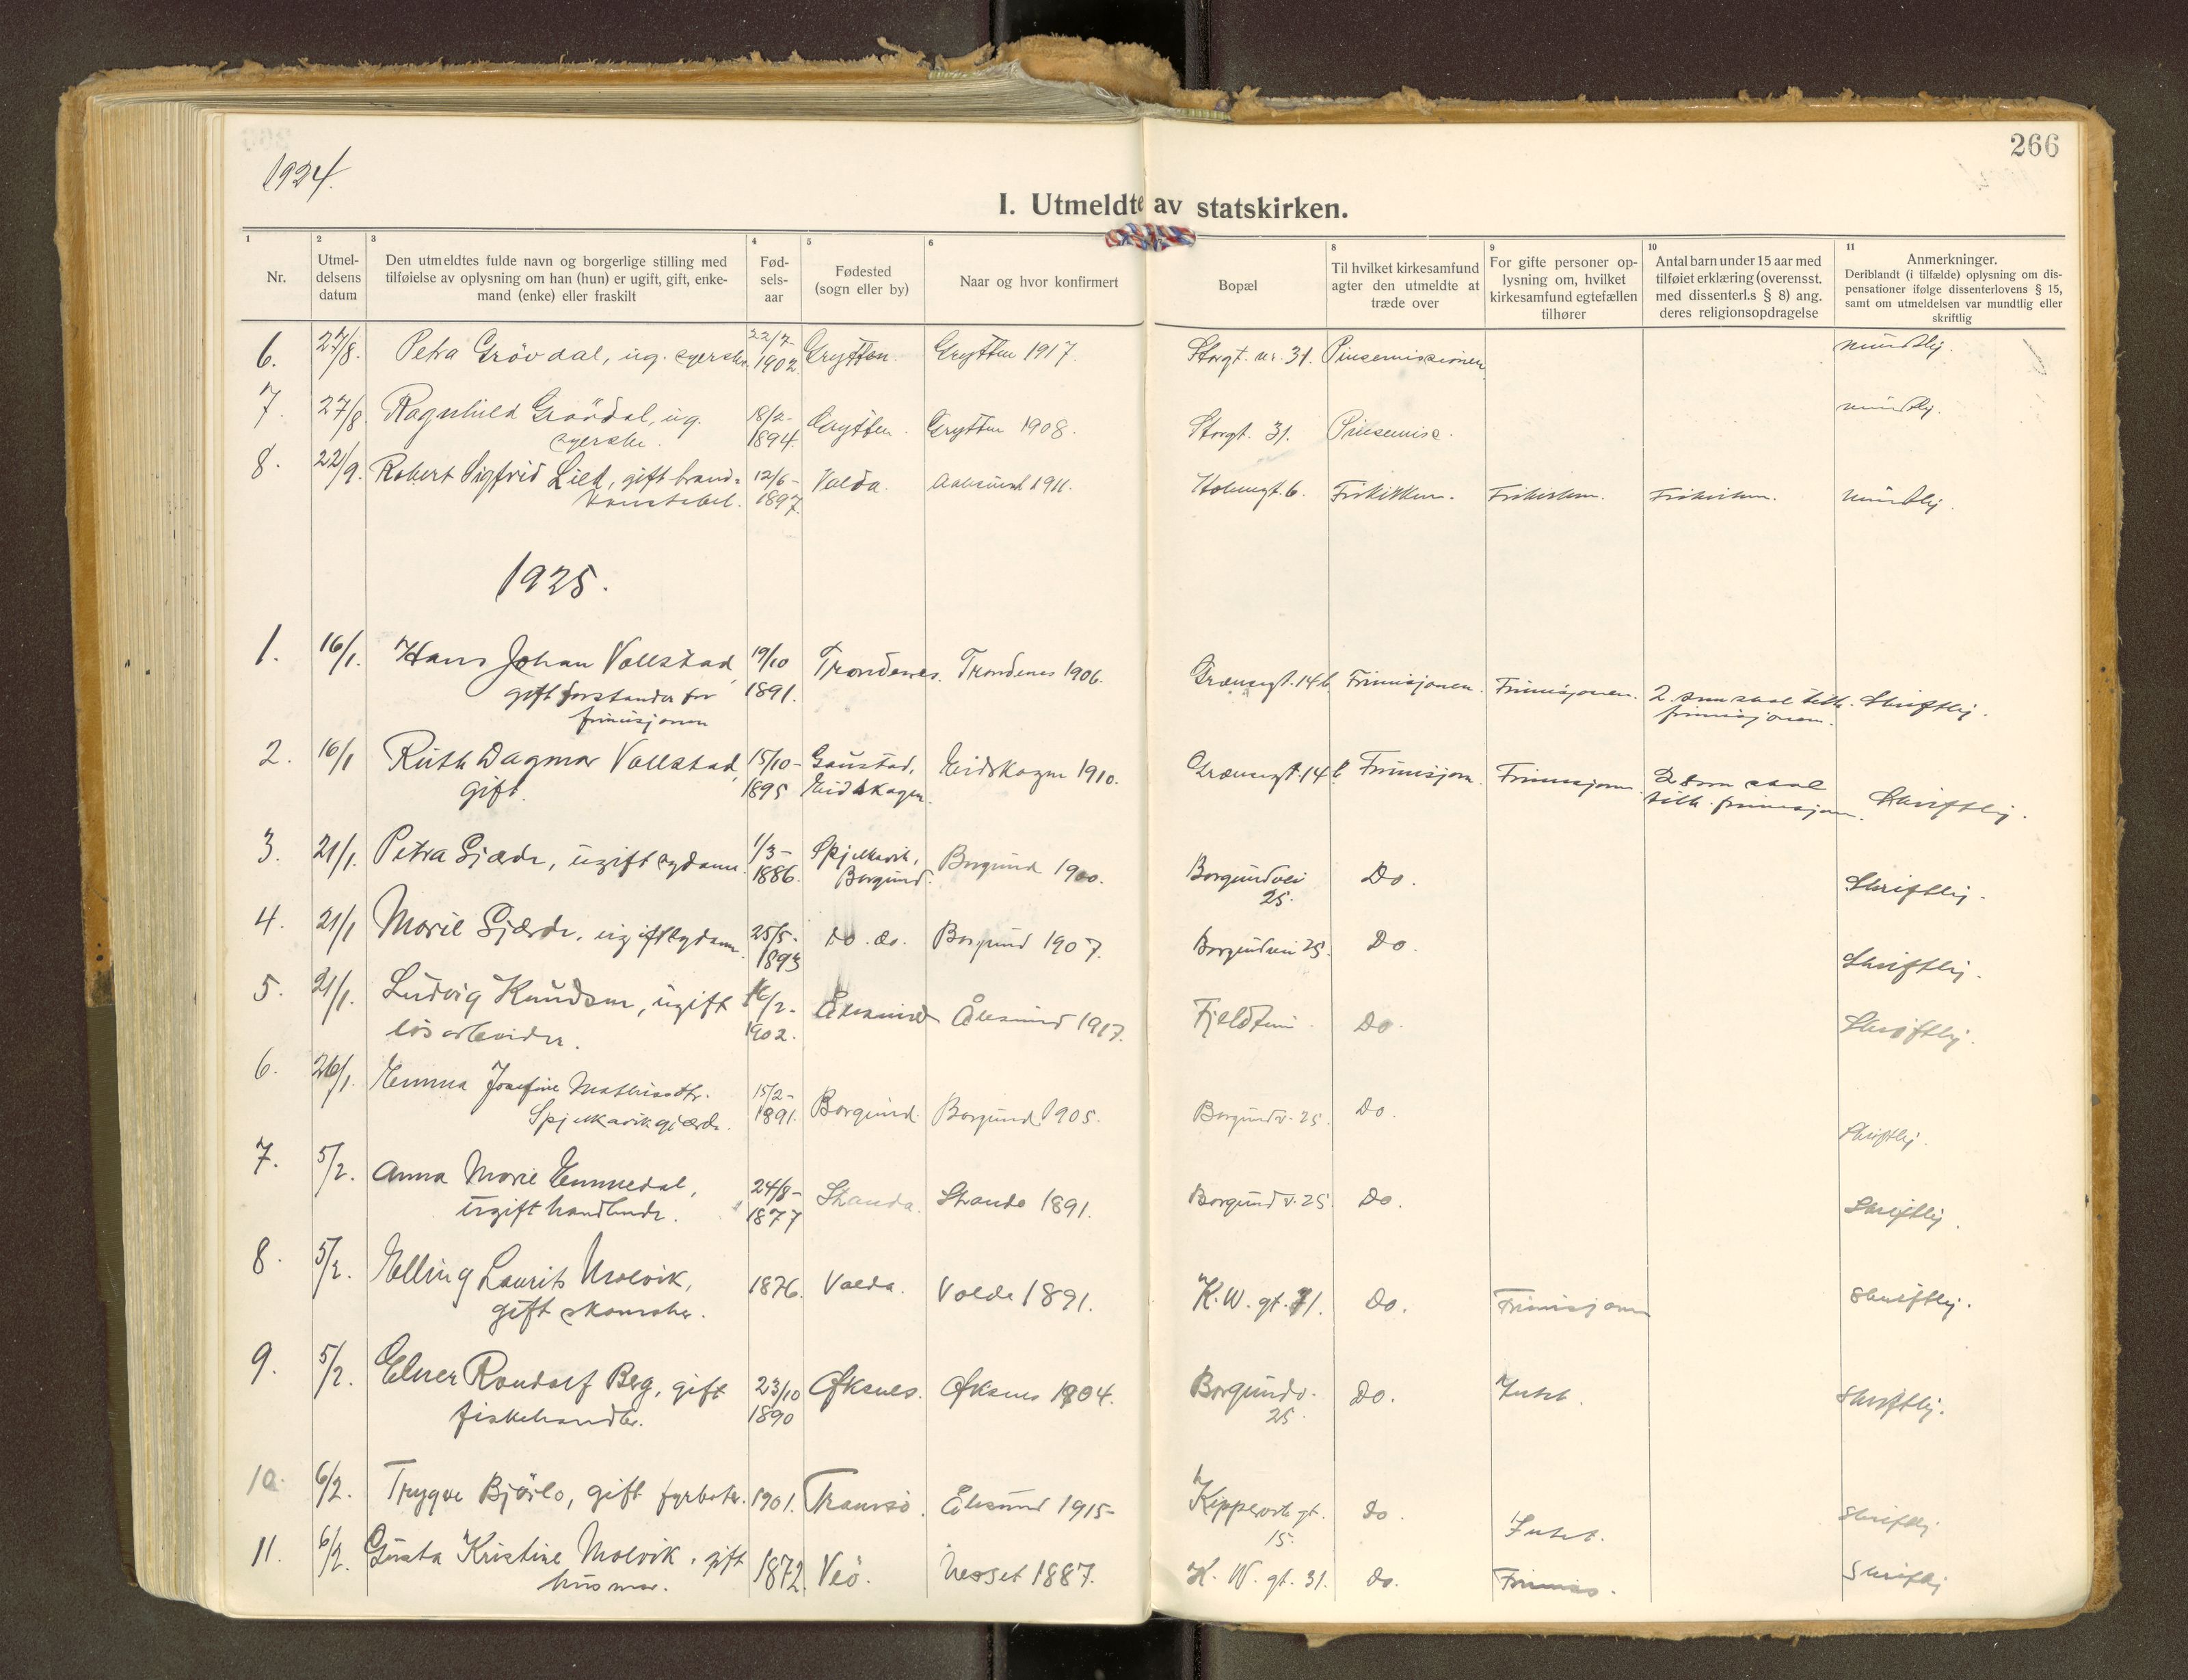 266
1924.
I. Utmeldte av statskirken.
1 2 3 4 5 6 8 9 10 11
Nr.
Utmel-
delsens
datum
Den utmeldtes fulde navn og borgerlige stilling med
tilføielse av oplysning om han (hun) er ugift, gift, enke-
mand (enke) eller fraskilt
Fød-
sels-
aar
Fødested
(sogn eller by)
Naar og hvor konfirmert
Bopæl
Til hvilket kirkesamfund
agter den utmeldte at
træde over
For gifte personer op-
lysning om, hvilket
kirkesamfund egtefællen
tilhører
Antal barn under 15 aar med
tilføiet erklæring (overensst.
med dissenterl.s § 8) ang.
deres religionsopdragelse
Anmerkninger.
Deriblandt (i tilfælde) oplysning om dis-
pensationer ifølge dissenterlovens § 15,
samt om utmeldelsen var mundtlig eller
skriftlig
6. 27/8. Petra Grövdal, ug. syerske. 22/7- 1902. Grytten. Grytten 1917. Storgt. nr. 31. Pinsemissionen mundtlig.
7. 27/8. Ragnhild Grövdal, ug. 18/2- Grytten. Grytten 1908. Storgt. 31. Pinsemiss. mundtlig.
syerske. 1894.
8. 22/9. Robert Sigfrid Lied, gift brand- 12/6- Volda. Aalesund 1911. Holmegt. 6. Frikirken. Frikirken. Frikirken. mundtlig
konstabel. 1897.
1925.
1. 16/1. Hans Johan Vollstad, 19/10 Trondenes. Trondenes 1906. Grænsegt. 14b. Frimisjonen. Frimisjonen. 2 som skal tilh. Skriftlig.
gift forstander for 1891. frimisjonen.
frimisjonen
2. 16/1 Ruth Dagmar Vollstad, 15/10- Gaustad, Eidskogen 1910. Grænsegt. 14b. Frimisjon. Frimisjonen. 2 som skal
gift. 1895 Eidskogen. tilh. frimisjon. Skriftlig.
3. 21/1. Petra Gjærde, ugift sydame. 1/3- Spjelkavik, Borgund 1900. Borgundvei Do. Skriftlig.
1886. Borgund. 25.
4. 21/1 Marie Gjærde, ugift sydame. 25/5- do. do. Borgund 1907. Borgundvei 25. Do. Skriftlig.
1893
5. 21/1. Ludvig Knudsen, ugift 16/2- Ålesund Ålesund 1917. Fjeldtun. Do. Skriftlig.
lösarbeider. 1902.
6. 26/1. Emma Josefine Mathiasdtr. 15/2- Borgund. Borgund 1905. Borgundv. 25. Do. Skriftlig.
Spjelkavikgjærde. 1891.
7. 5/2. Anna Marie Emmedal, 24/8- Stranda. Stranda 1891. Borgundv. 25. Do. Skriftlig.
ugift handlende. 1877
8. 5/2. Elling Laurits Molvik, 1876. Volda. Volda 1891. K. W. gt. 31. Do. Frimisjonen Skriftlig.
gift skomaker.
9. 5/2. Elner Rondolf Berg, gift 23/10 Øksnes. Øksnes 1904. Borgundv. Do. Intet. Skriftlig.
fiskehandler. 1890 25.
10. 6/2. Trygve Bjørlo, gift fyrböter. 1901. Tromsö. Ålesund 1915- Kippervik gt. Do. Intet. Skriftlig
15.
11. 6/2. Gusta Kristine Molvik, gift 1872. Veö. Nesset 1887. K. W. gt. 31. do. Frimiss. Skriftlig
husmor.